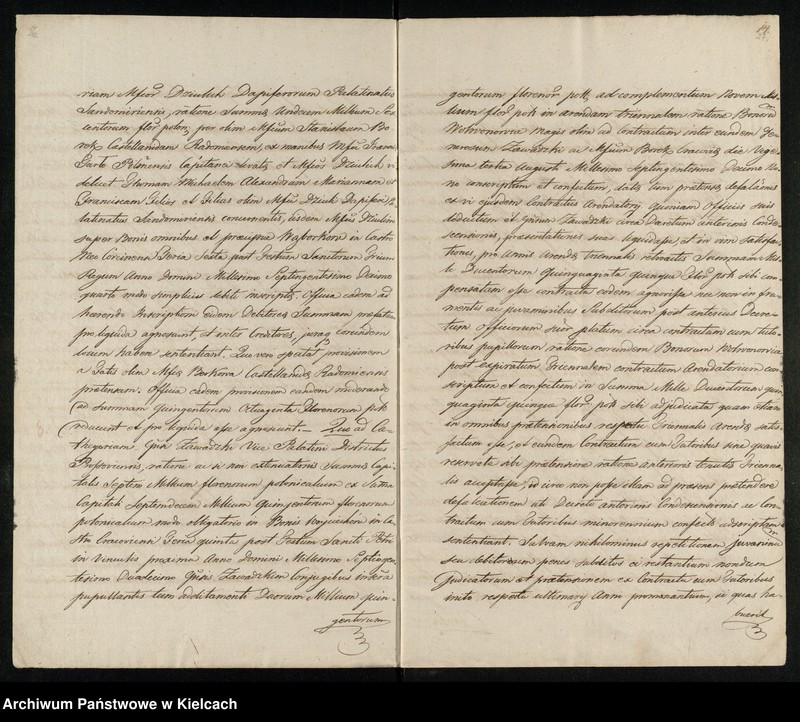 riam Mfcor Dziulich Dapiferorum Palatinatus
Sandomiriensis, ratione Summae Undecim Millium Sex
centorum flor polon; per olim Mfcum Stanislaum Bo
rek Castellandum Radomiensem, ex manibus Mfci Fran
Garlo Capitanea levatae et Mfcor Dziulich vi
delicet Michaelem Alexandram Mariannam et
Franciscam Filios et Filias olim Mfci Dziuli Dapiferi Pa
latinatus Sendomiriensis concernentis, iisdem Mfcis Dziulim
super Bonis omnibus et praecipue Wąborkow in Castro
Nco Corcinens Feria Sexta post Festum Sanctorum Trium
Regum Anno Domini Millesimo Septingentesimo Decimo
quarto modo simplicis debiti inscriptae, Officia eadem ad
haerendo Inscriptioni eidem Debitores Summam praefatam
pro liquida agnoscunt, et inter Creditores, juxta eorundem
locum habere sententiant. Quo vero spectat provisionem
a Gntis olim Mfcis Borkowa Castellandis Radomiensis
praetensam. Officia eadem provisionem eandem moderando
ad summam Quingentorum Octuaginta Florenorum polt
reducunt et pro liquida esse agnoscunt. — Quo ad Ca
thegoriam Gsdi Zawadzki Vice Palatini Districtus
ratione ac si non extenuationis Summae Capi
talis Septem Millium florenorum polonicalium ex Summa
Capitali Septemdecem Millium Quingentorum florenorum
polonicalium modo obligatorio in Bonis in Ca
stro Cracoviensi Feria quinta post Festum Sancti Petri
in Vinculis proxima Anno Domini Millesimo Septingen
tesimo Duodecimo Gsdis Zawadzkim Conjugibus inscri
pupullantis tum additamenti Duorum Millium quin-
gentorum
14
gentorum florenor polt, ad complementum Novem Mil
lium flor polt in arendam triennalem ratione Bonorum
Wolwonowice magis olim ad Contractum inter eundem Ge
nerosum Zawadzki ac Mfcum Borek Cracoviae die Vige
sima tertia Augusti Millesimo Septingentesimo Decimo No
no conscriptum et confectum, datae tum praetensae defalcationis
ex vi ejusdem Contractus Arendatorij Quoniam Officiis suis
deductum est Gsdum Zawadzki circa Decretum anterioris Conde
scensionis, praesentationes suas liquidasse, et in vim Satisfac
tionis, pro Annis Arendae triennalis retroactis Summam Mil
le Ducentorum Quinquaginta quinque flor polt sibi com
pensatum esse contracta eadem agnovisse nec non in fru
mentis ac juvaminibus Subditorum post anterius Decre
tum Officiorum suor platum circa contractum cum tuto
ribus pupillorum ratione eorundem Bonorum Wolwonowice
post expiratum Triennalem contractum Arendatorium con
scriptum et confectum in Summa Mille Ducentorum quin
quaginta quinque flor. polt sibi adjudicata quam etiam
in omnibus praetensionibus respectu Triennalis Arendae satis
factum esse, et eundem Contractum cum Tutoribus sine quavis
reservata sibi praetensione ratione anterioris tenutis Trienna
lis accepisse, ad circo non posse illam ad praesens praetendere
defalcationem ab Decreti anterioris Condescensionis ac Con
tractum cum Tutoribus minorennium confecti adscriptam
sententiant. Salvam nihilominus repetitionem juvaminum
seu debitorum penes subditos ex restantium nondum
judicatorum et praetensionem ex Contractu cum Tutoribus
inito respectu ultimarij Anni promanantium, si quas ha-
buerit
Archiwum Państwowe w Kielcach